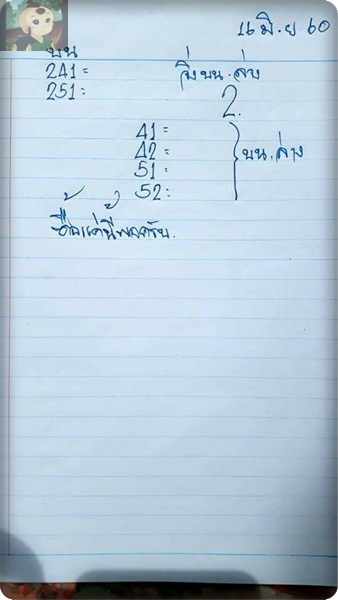 16 มิ.ย 60
บน
241=
251=
วิ่งบน.ล่าง
2.
41=
42=
51=
52:
บน.ล่าง
ซื้อแค่นี้พอครับ.